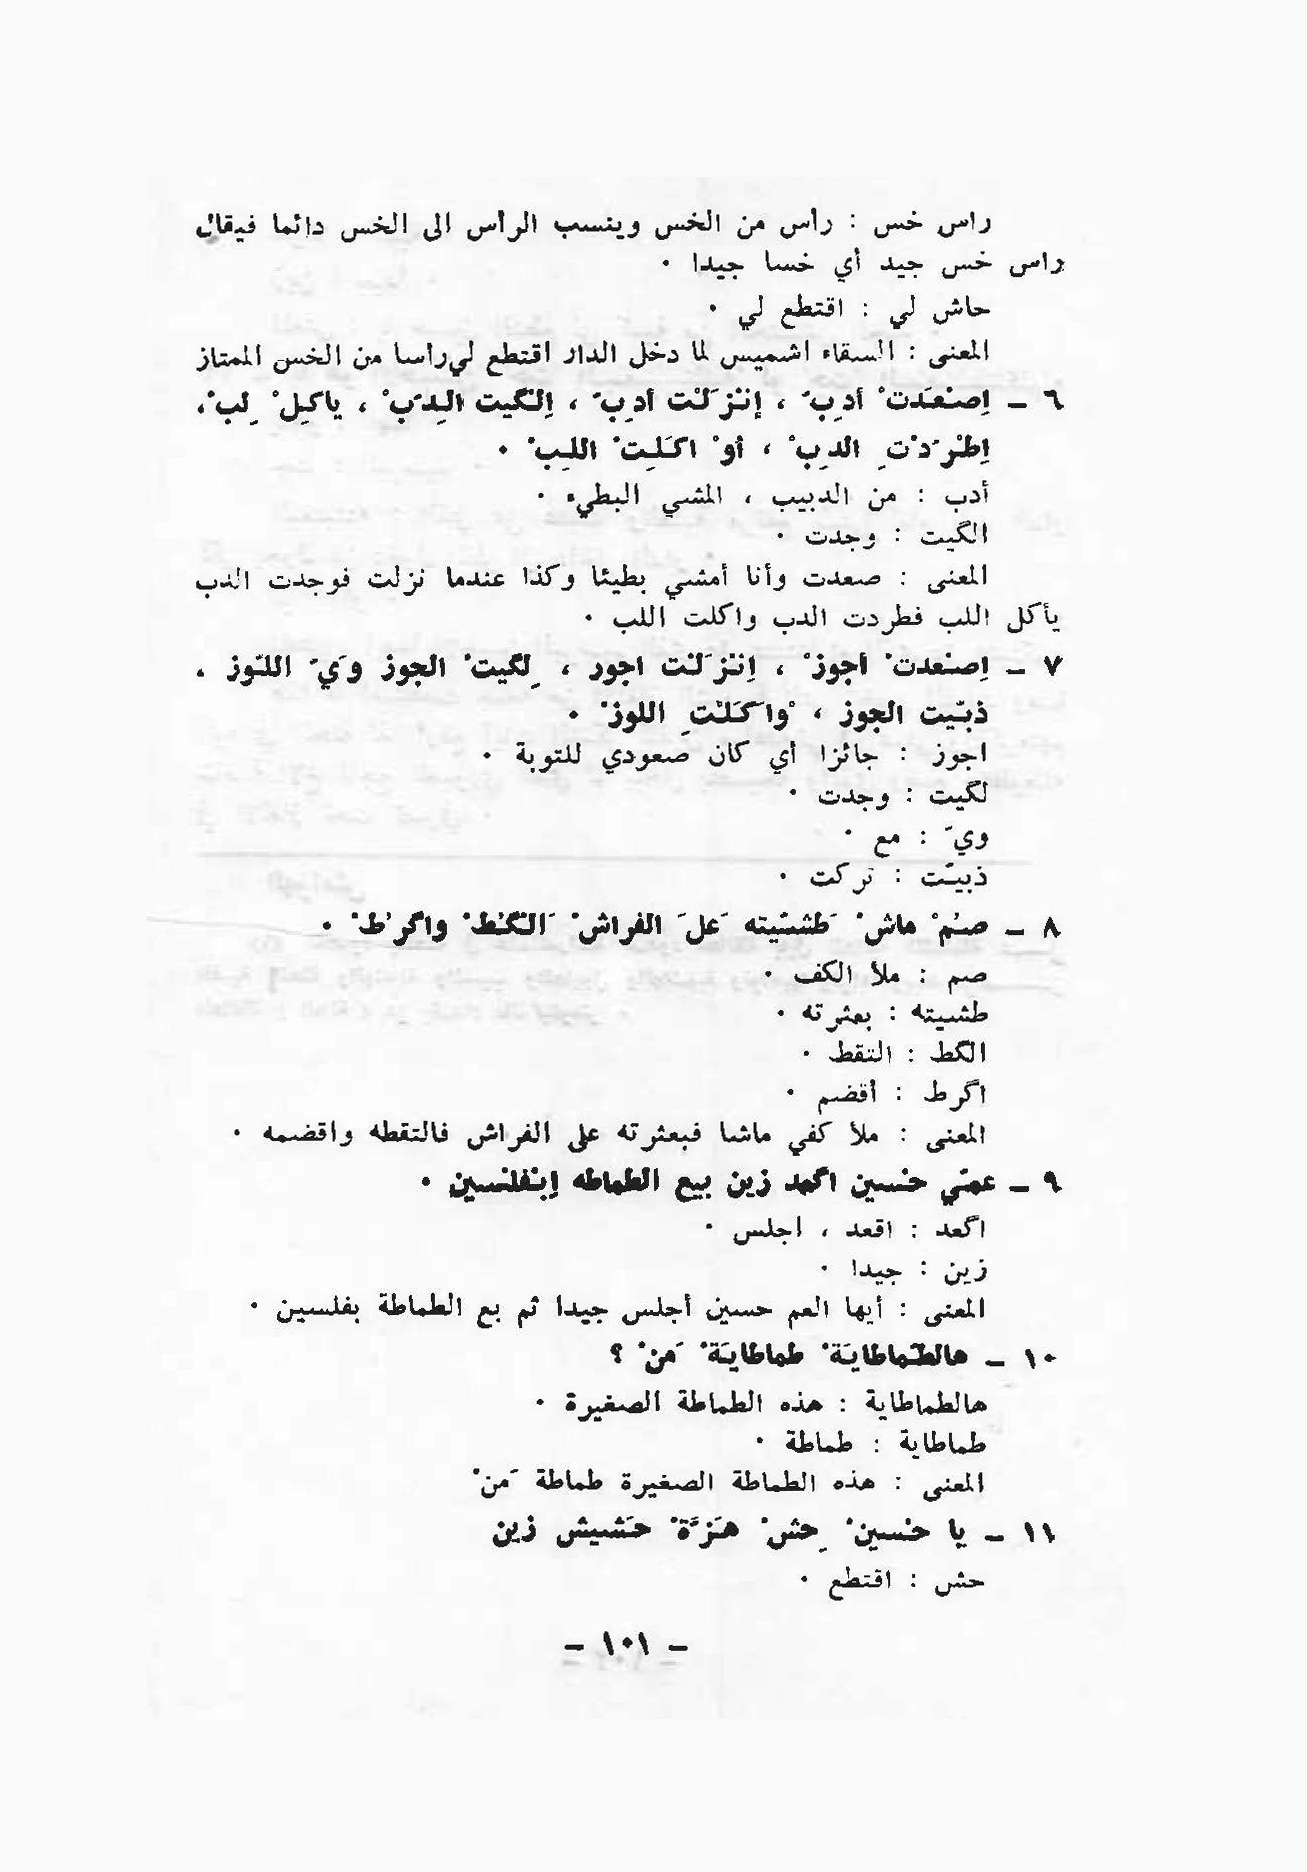 راس خس : رأس من الخس وينسب الرأس الى الخس دائما فيقال
راس خس جيد أي خسا جيدا .
حاش لي : اقتطع لي .
المعنى : السقاء اشميس لما دخل الدار اقتطع لي رأسا من الخس الممتاز
٦ – اِصْعَدَتْ أدِبّ ، إنْزَلَتْ أدِبّ ، اِلگيت الدِبّ ، ياكِلْ لِبْ،
اِطْرَدْتِ الدِبْ ، أوْ اكَلِتْ اللِبْ .
أدب : من الدبيب ، المشي البطيء .
الگيت : وجدت .
المعنى : صعدت وأنا أمشي بطيئا وكذا عندما نزلت فوجدت الدب
يأكل اللب فطردت الدب واكلت اللب .
٧ – اِصْعدتْ أجوزْ ، اِنْزَلْت اجوز ، لِگيتْ الجوز وَيّ اللّوز ،
ذبّيت الجوز ، وْاكَلْتِ اللوزْ .
اجوز : جائزا أي كان صعودي للتوبة .
لگيت : وجدت .
ويّ : مع .
ذبيّت : تركت .
٨ – صُمْ ماشْ طَشّيته عَلَ الفراشْ اَلْگُطْ واگرُطْ .
صم : ملأ الكف .
طشيته : بعثرته .
الگط : التقط .
اگرط : أقضم .
المعنى : ملأ كفي ماشا فبعثرته على الفراش فالتقطه واقضمه .
٩ – عمّي حْسين اگعد زين بيع الطماطه اِبْفلْسين .
اگعد : اقعد ، اجلس .
زين : جيدا .
المعنى : أيها العم حسين أجلس جيدا ثم بع الطماطة بفلسين .
١٠ – هالطّماطايَةْ طماطايَةْ مَنْ ؟
هالطماطاية : هذه الطماطة الصغيرة .
طماطاية : طماطة .
المعنى : هذه الطماطة الصغيرة طماطة مَنْ
١١ – يا حْسينْ حِشْ هَزَّةْ حَشيش زين
حش : اقتطع .
– ١٠١ –